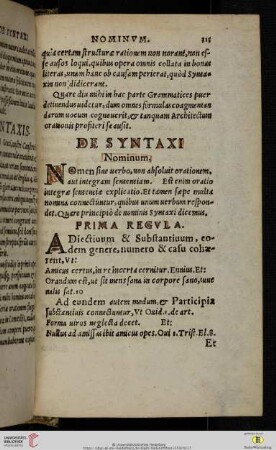 NOMINVM.
quia certam structuræ rationem non norant, non es-
se ausos loqui, quibus opera omnis collata in bonas
literas, unam hanc ob causam perierat, quòd Synta-
xin non didicerant.
Quare diu mihi in hac parte Grammatices puer
detinendus uidetur, dum omnes formulas coagmentan
darum uocum cognuerit, & tanquam Architectum
orationis profiteri se ausit.
DE SYNTAXI
Nominum.
NOmen sine uerbo, non absoluit orationem,
aut integram sententiam. Est enim oratio
integræ sententiæ explicatio. Et tamen sæpe multa
nomina connectuntur, quibus unum uerbum respon-
det. Quare principiò de nominis Syntaxi dicemus.
PRIMA REGVLA.
ADiectiuum & Substantiuum, eo-
dem genere, numero & casu cohæ-
rent. Vt:
Amicus certus, in re incerta cernitur. Ennius. Et:
Orandum est, ut sit mens sana in corpore sano, iuue
nalis sat. 10
Ad eundem autem modum, & Participia
substantiuis connectuntur, Vt Ouid. de art.
Forma uiros neglecta decet. Et:
Nullus ad amissas ibit amicus opes. Oui 1. Trist. El. 8.
Et